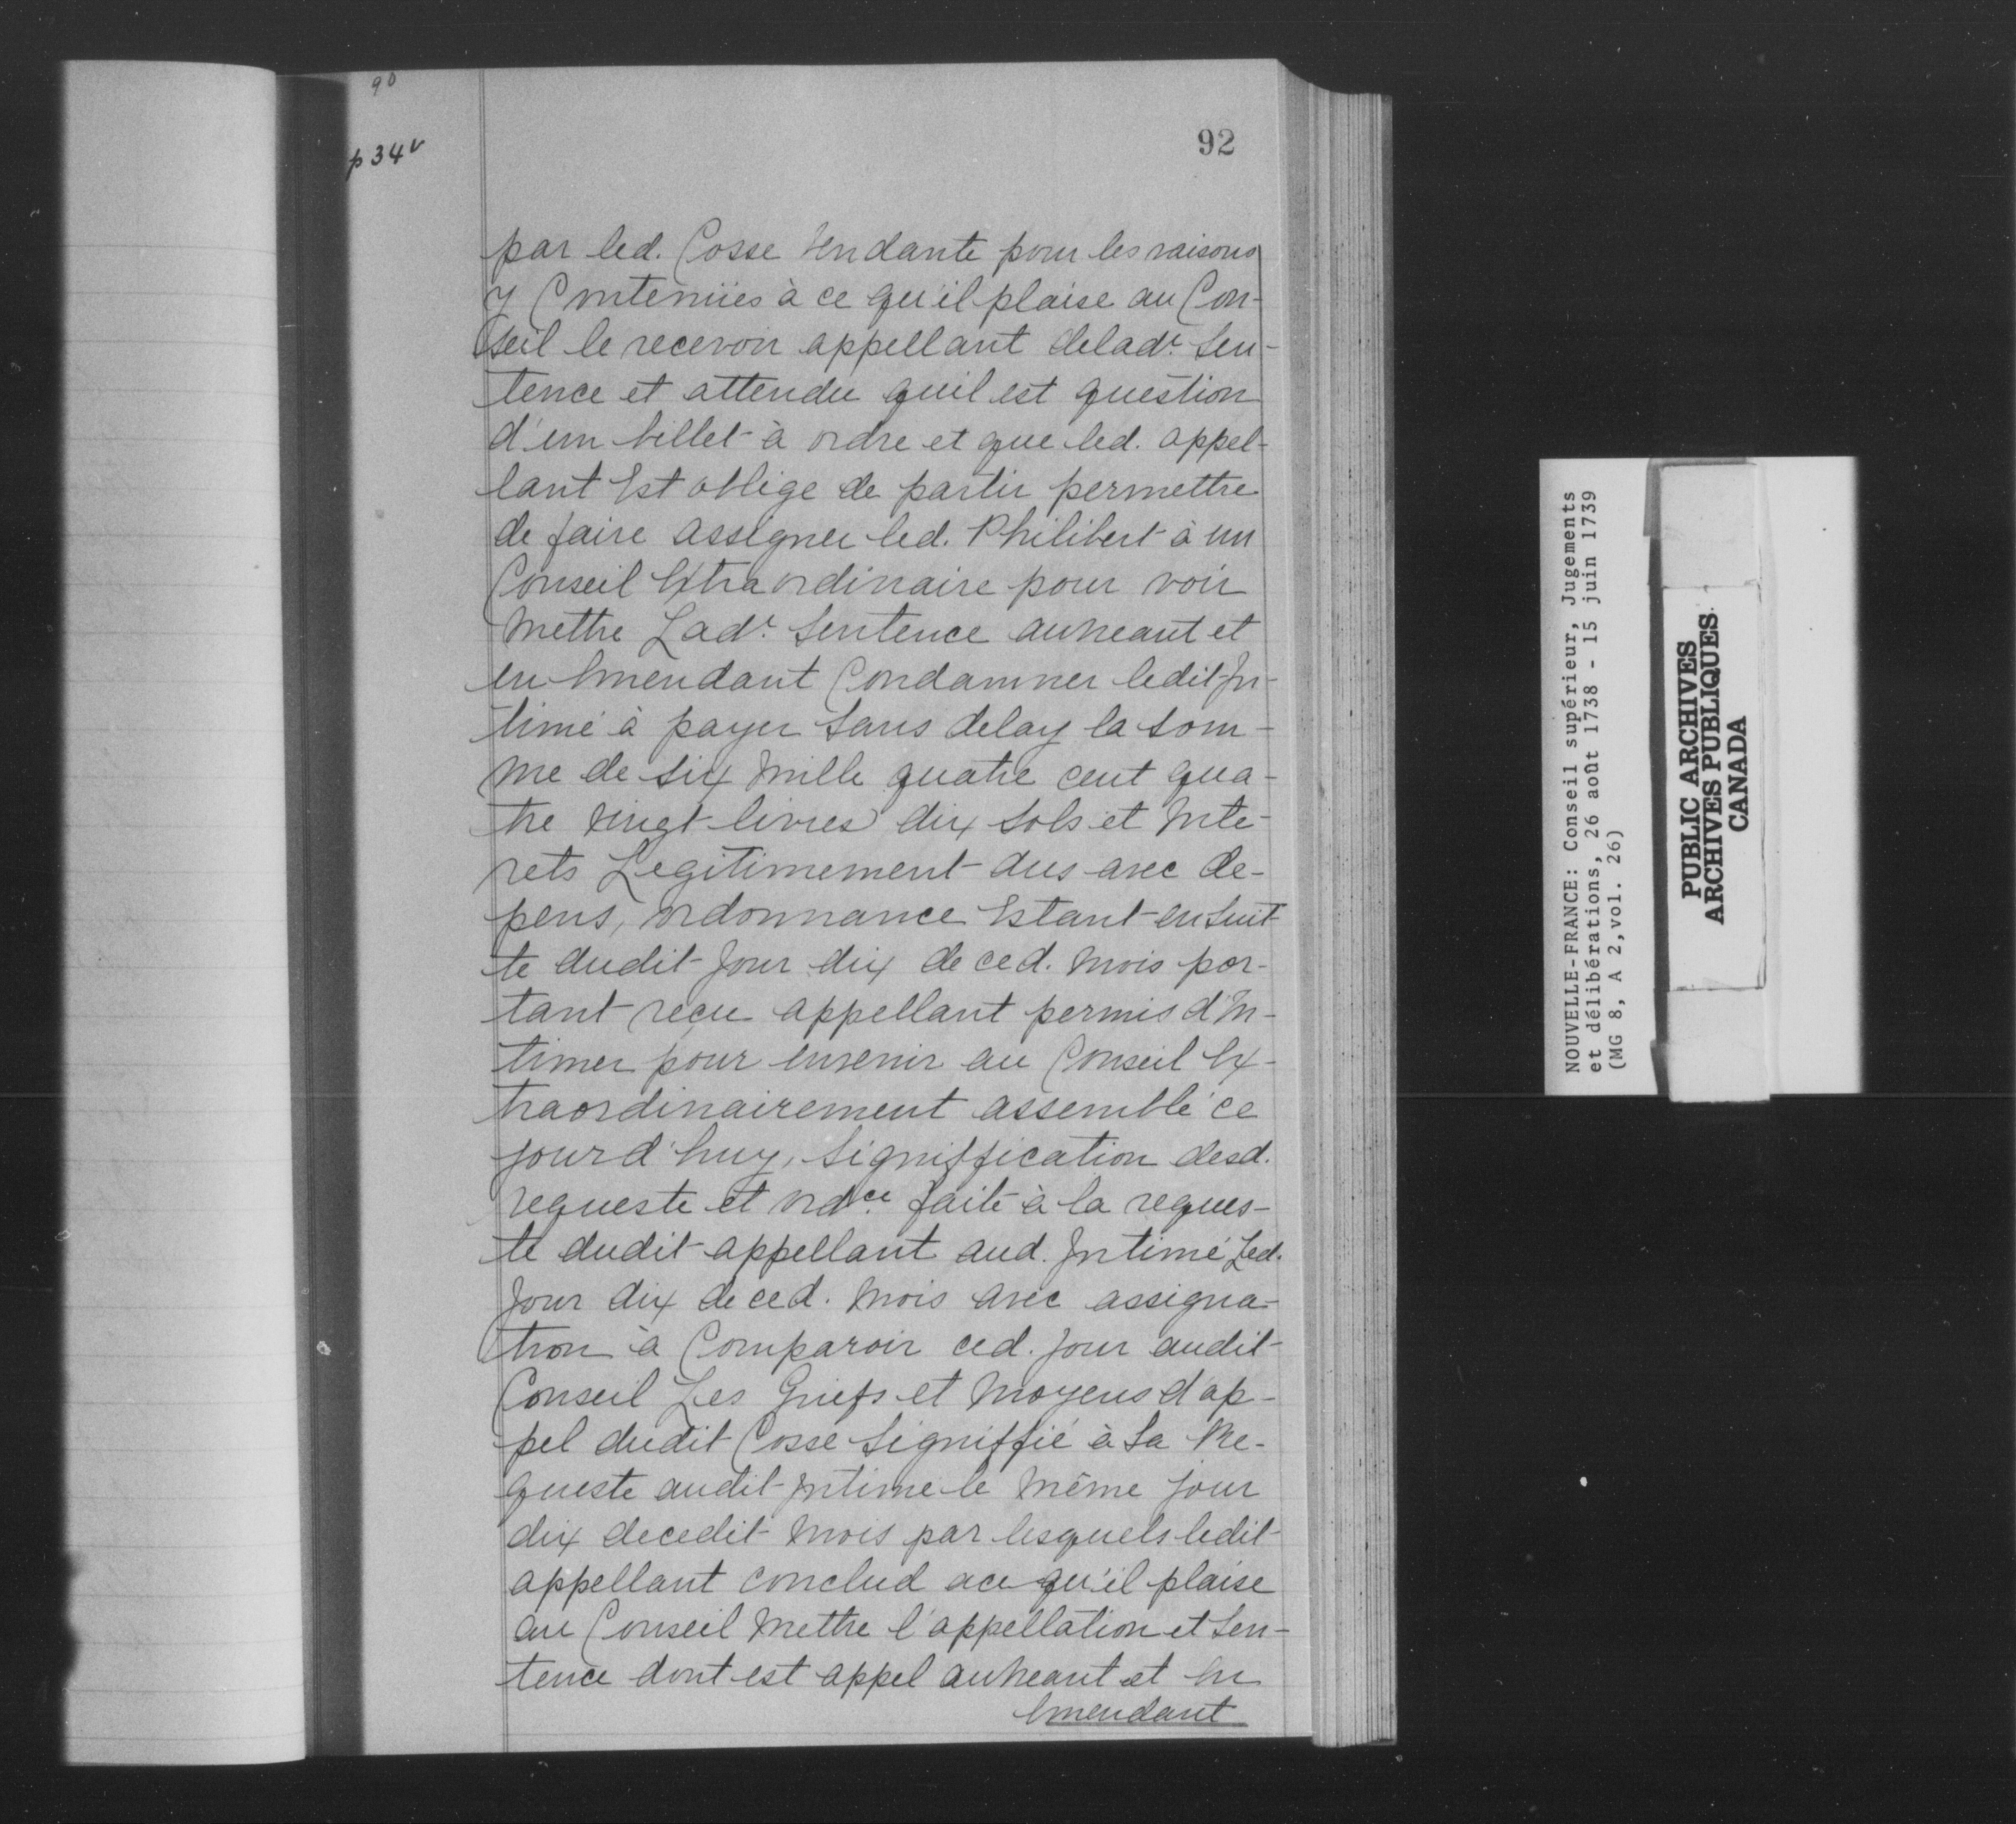 90
p 34 v
92
par led. Cosse tendante pour les raisons
y Contenües à ce qu'il plaise au Con-
seil le recevoir appellant delade. Sen-
tence et attendu quil est question
d'un billet à ordre et que led. appel-
lant Est oblige de partir permettre
de faire assigner led. Philibert à un
Conseil Extraordinaire pour voir
Mettre Lade. Sentence auneant et
en Emendant Condamner ledit In-
timé à payer Sans delay la Som-
me de Six Mille quatre cent qua-
tre vingt livres dix Sols et Inte-
rets Legitimement dus avec de-
pens, ordonnance Estant ensuit
te dudit Jour dix de ced. Mois por-
tant reçu appellant permis d'In-
timer pour envenir au Conseil Ex-
traordinairement assemblé ce
jourd'huy, Signiffication desd.
requeste et ordce. faite à la reques-
te dudit appellant aud. Intimé Led.
Jour dix de ced. Mois avec assigna-
tion à Comparoir ced. Jour audit
Conseil Les Griefs et Moyens d'ap-
pel dudit Cosse Signiffié à Sa Re-
queste audit Intime le Même Jour
dix decedit Mois par lesquels ledit
appellant conclud ace qu'il plaise
au Conseil Mettre l'appellation et Sen-
tence dont est appel auneant et En
Emendant
NOUVELLE-FRANCE: Conseil supérieur, Jugements
et délibérations, 26 août 1738 - 15 juin 1739
(MG 8, A 2,vol. 26)
PUBLIC ARCHIVES
ARCHIVES PUBLIQUES
CANADA